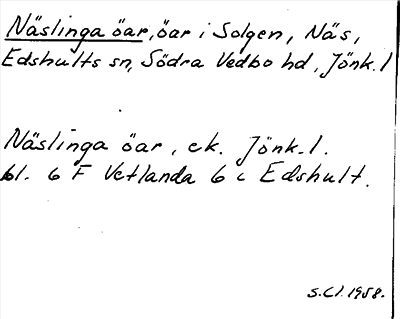 Näslinga öar, öar i Solgen, Näs,
Edshults sn, Södra Vedbo hd, Jönk. l
Näslinga öar, ek. Jönk. l.
bl. 6 F Vetlanda 6 c Edshult.
S.Cl. 1958.